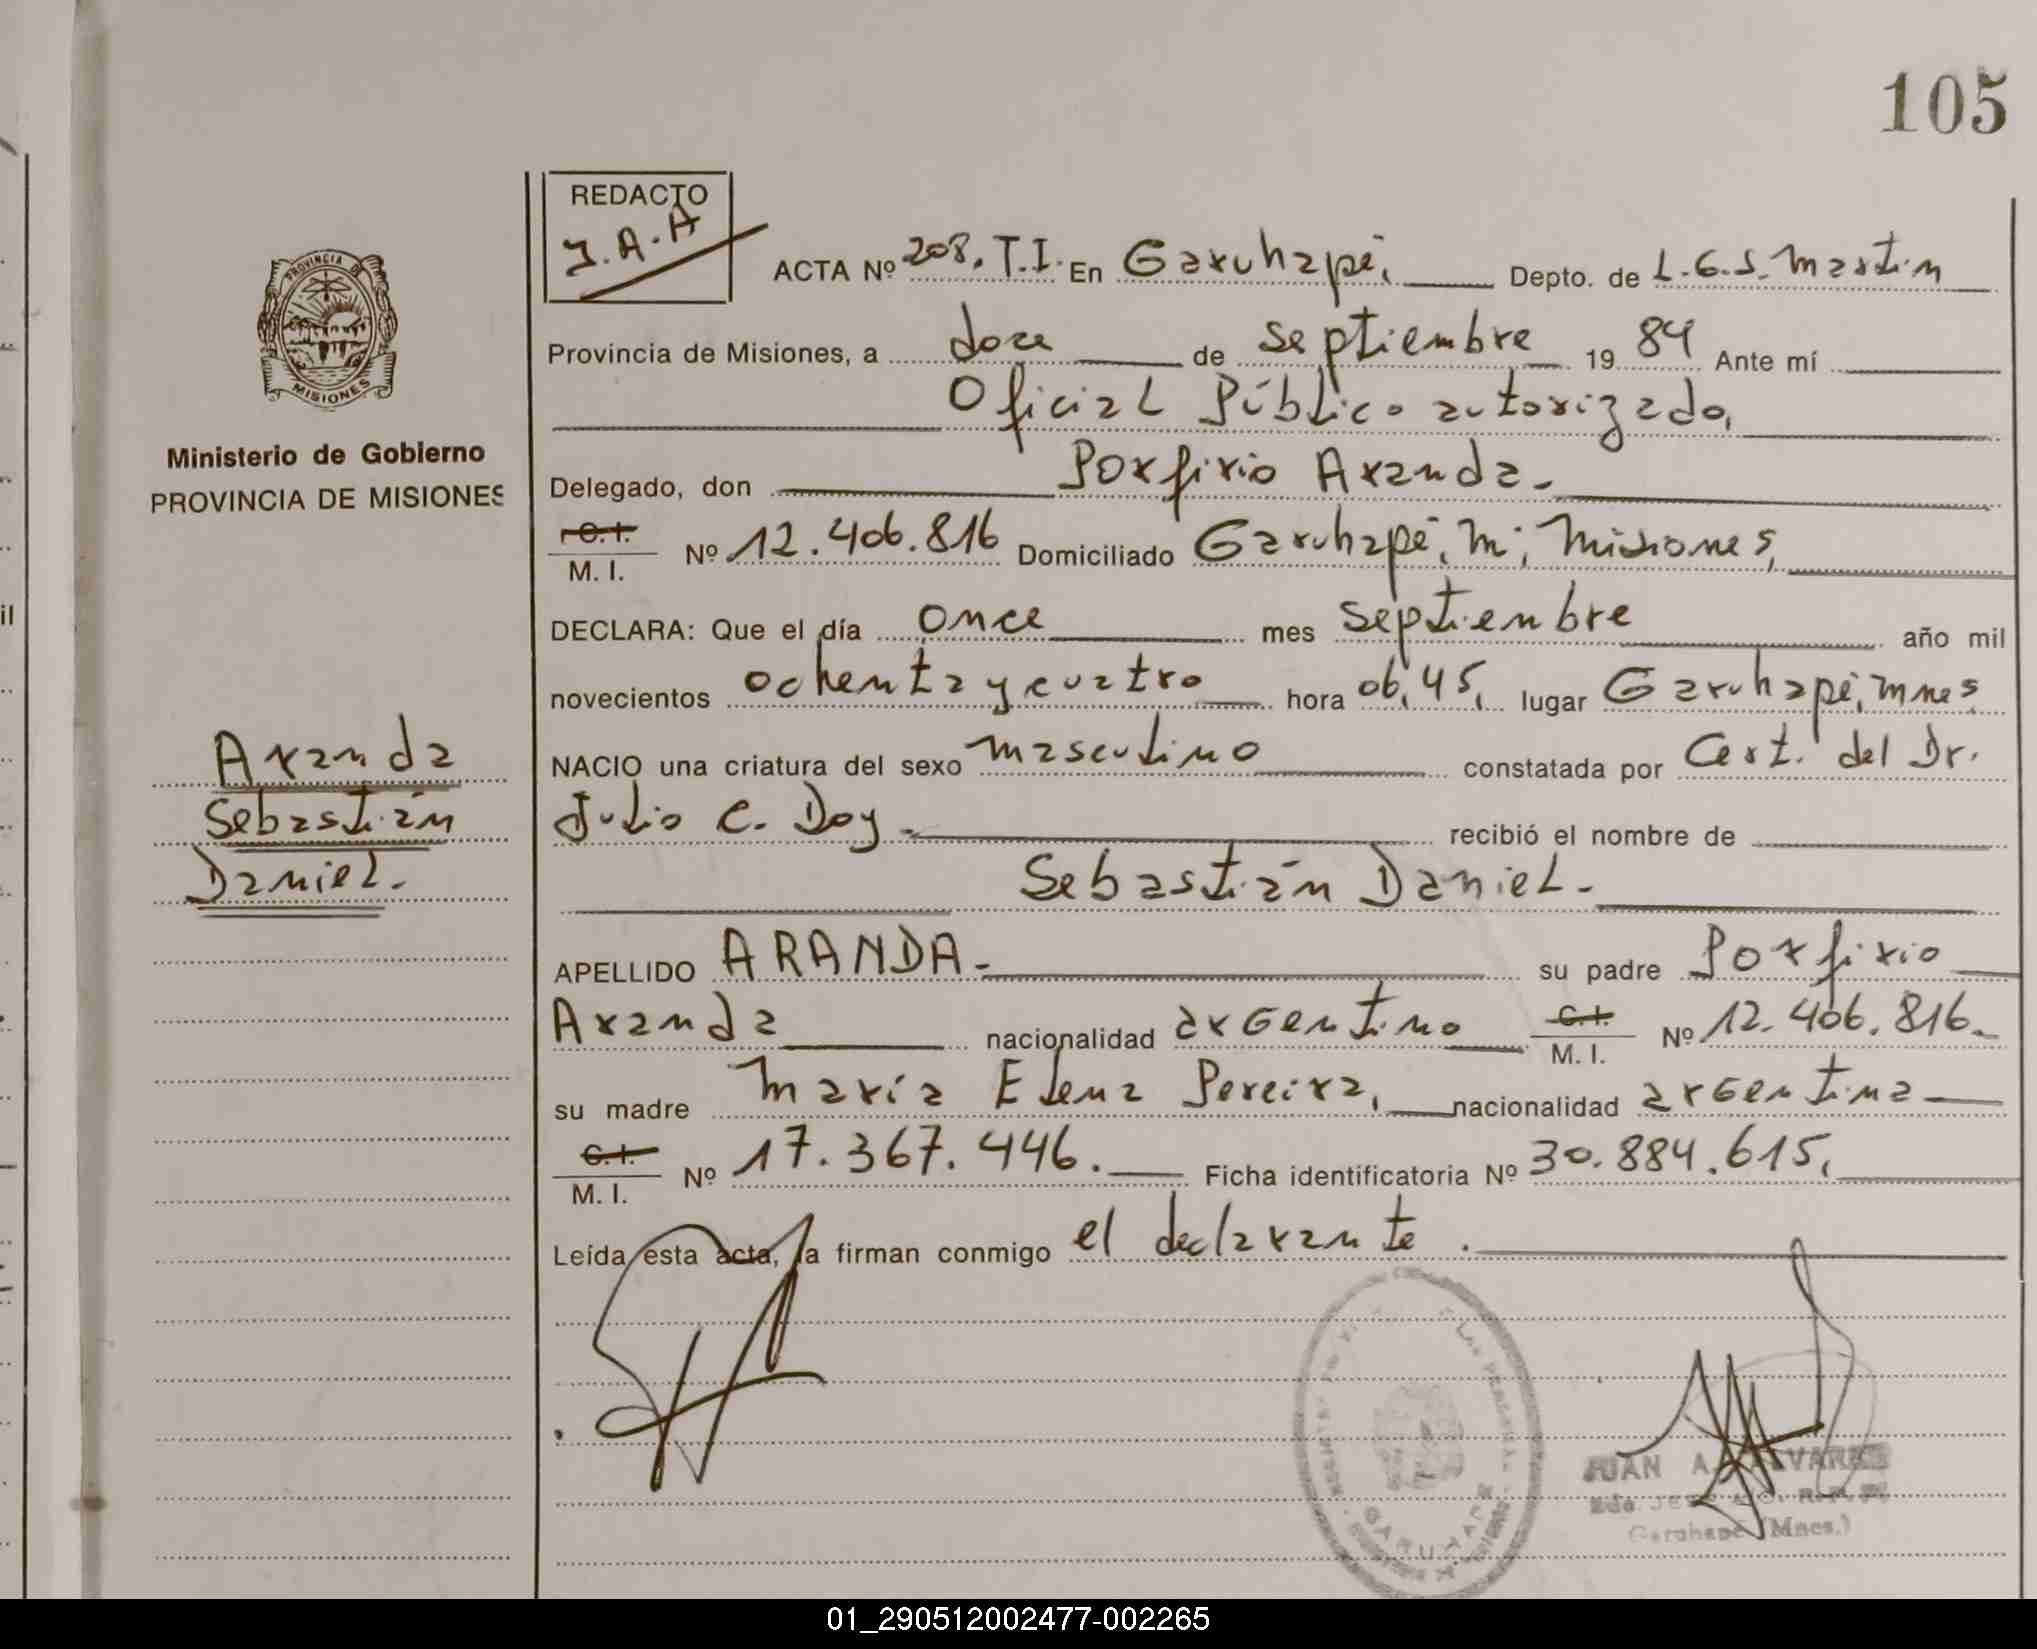 105
REDACTO
J.A.A
ACTA Nº 208. T.I. En Garuhapé, Depto. de L.G.S. Martin
Provincia de Misiones, a doce de septiembre 19 84 Ante mí
Oficial Público autorizado,
Delegado, don Porfirio Aranda.
C.I.
M. I. Nº 12.406.816 Domiciliado Garuhapé, M; Misiones,
DECLARA: Que el día once mes septiembre año mil
novecientos ochenta y cuatro hora 06,45, lugar Garuhapé, Mnes
NACIO una criatura del sexo masculino constatada por Cert. del Dr.
Julio C. Doy - recibió el nombre de
Sebastián Daniel -
APELLIDO ARANDA - su padre Porfirio
Aranda nacionalidad argentino C.I.
M. I. Nº 12.406.816.
su madre María Elena Pereira, nacionalidad argentina
C.I.
M. I. Nº 17.367.446. Ficha identificatoria Nº 30.884.615,
Leída esta acta, la firman conmigo el declarante.
PROVINCIA DE
MISIONES
Ministerio de Gobierno
PROVINCIA DE MISIONES
Aranda
Sebastián
Daniel.
GARUHAPE
JUAN A. ALVAREZ
Garuhapé (Mnes.)
01_290512002477-002265